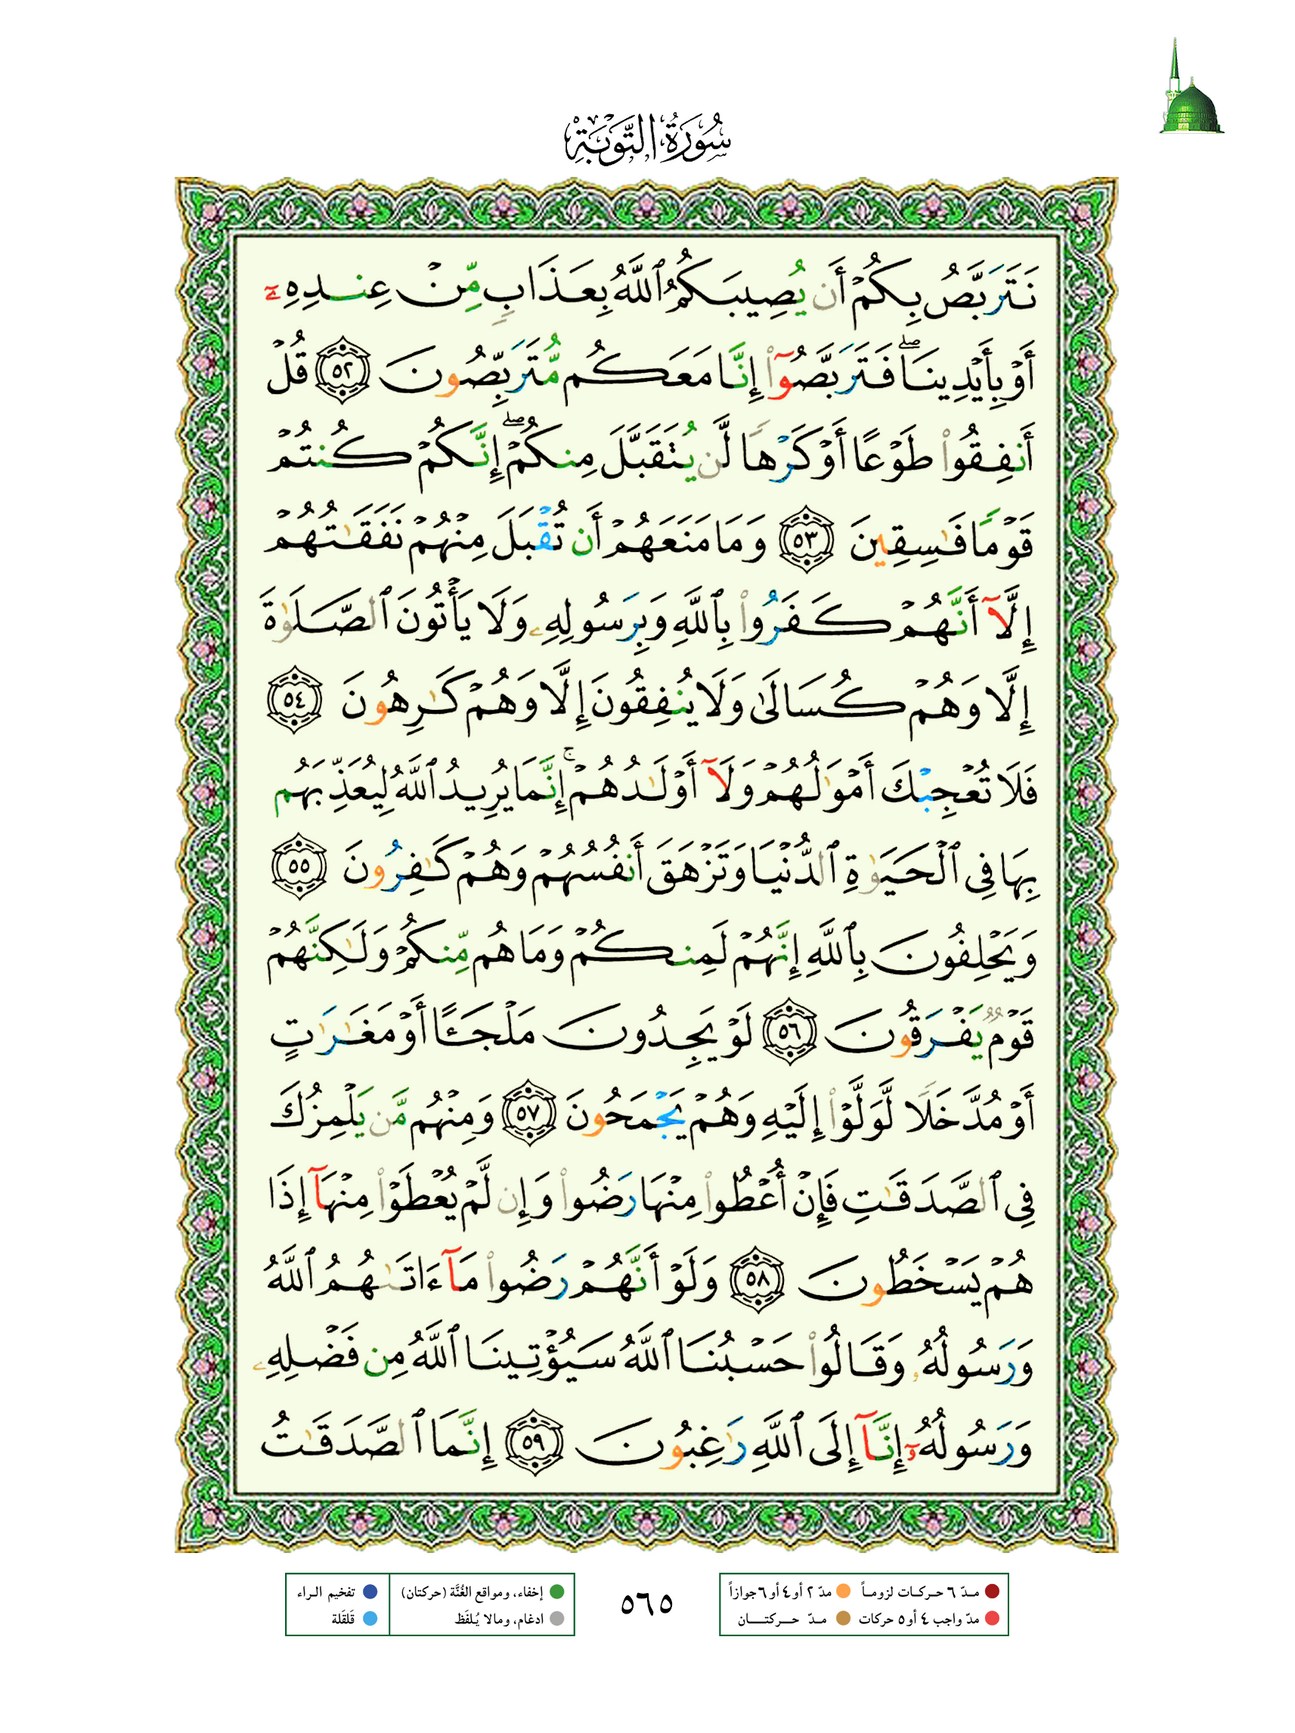 سُورَةُ التَّوْبَةِ
نَتَرَبَّصُ بِكُمْ أَن يُصِيبَكُمُ ٱللَّهُ بِعَذَابٍ مِّنْ عِندِهِۦٓ
أَوْ بِأَيْدِينَا ۖ فَتَرَبَّصُوٓا۟ إِنَّا مَعَكُم مُّتَرَبِّصُونَ ٥٢ قُلْ
أَنفِقُوا۟ طَوْعًا أَوْ كَرْهًا لَّن يُتَقَبَّلَ مِنكُمْ ۖ إِنَّكُمْ كُنتُمْ
قَوْمًا فَـٰسِقِينَ ٥٣ وَمَا مَنَعَهُمْ أَن تُقْبَلَ مِنْهُمْ نَفَقَـٰتُهُمْ
إِلَّآ أَنَّهُمْ كَفَرُوا۟ بِٱللَّهِ وَبِرَسُولِهِۦ وَلَا يَأْتُونَ ٱلصَّلَوٰةَ
إِلَّا وَهُمْ كُسَالَىٰ وَلَا يُنفِقُونَ إِلَّا وَهُمْ كَـٰرِهُونَ ٥٤
فَلَا تُعْجِبْكَ أَمْوَٰلُهُمْ وَلَآ أَوْلَـٰدُهُمْ ۚ إِنَّمَا يُرِيدُ ٱللَّهُ لِيُعَذِّبَهُم
بِهَا فِى ٱلْحَيَوٰةِ ٱلدُّنْيَا وَتَزْهَقَ أَنفُسُهُمْ وَهُمْ كَـٰفِرُونَ ٥٥
وَيَحْلِفُونَ بِٱللَّهِ إِنَّهُمْ لَمِنكُمْ وَمَا هُم مِّنكُمْ وَلَـٰكِنَّهُمْ
قَوْمٌ يَفْرَقُونَ ٥٦ لَوْ يَجِدُونَ مَلْجَـًٔا أَوْ مَغَـٰرَٰتٍ
أَوْ مُدَّخَلًا لَّوَلَّوْا۟ إِلَيْهِ وَهُمْ يَجْمَحُونَ ٥٧ وَمِنْهُم مَّن يَلْمِزُكَ
فِى ٱلصَّدَقَـٰتِ فَإِنْ أُعْطُوا۟ مِنْهَا رَضُوا۟ وَإِن لَّمْ يُعْطَوْا۟ مِنْهَآ إِذَا
هُمْ يَسْخَطُونَ ٥٨ وَلَوْ أَنَّهُمْ رَضُوا۟ مَآ ءَاتَىٰهُمُ ٱللَّهُ
وَرَسُولُهُۥ وَقَالُوا۟ حَسْبُنَا ٱللَّهُ سَيُؤْتِينَا ٱللَّهُ مِن فَضْلِهِۦ
وَرَسُولُهُۥٓ إِنَّآ إِلَى ٱللَّهِ رَٰغِبُونَ ٥٩ إِنَّمَا ٱلصَّدَقَـٰتُ
مدّ ٦ حركات لزوماً مدّ ٢ أو ٤ أو ٦ جوازاً
مدّ واجب ٤ أو ٥ حركات مدّ حركتان
٥٦٥
إخفاء، ومواقع الغُنَّة (حركتان) تفخيم الراء
ادغام، ومالا يُلفَظ قَلقَلة